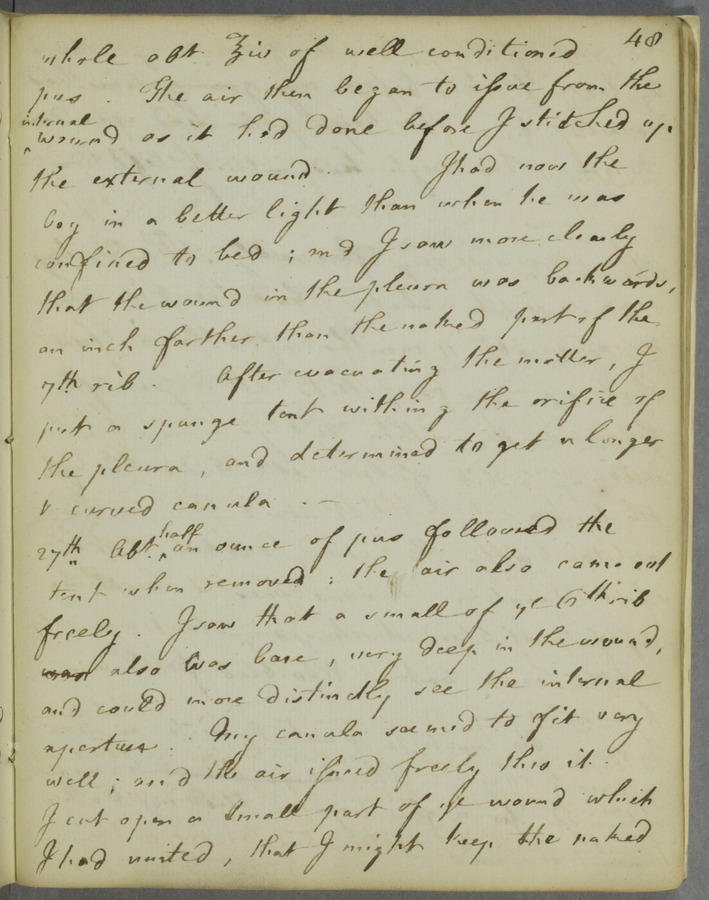 48
whole abt ℥iv of well conditioned
pus . The air then began to issue from the
internal
wound as it had done before I stitched up
the external wound . I had now the
boy in a better light than when he was
confined to bed ; and I saw more clearly
that the wound in the pleura was backwards,
an inch farther than the naked part of the
7th rib . After evacuating the matter, I
put a spunge tent within the orifice of
the pleura, and determined to get a longer
& curved canula . —
half
27th Abt an ounce of pus followed the
tent when removed : the air also came out
freely . I saw that a small of ye 6th rib
was also was bare, very deep in the wound,
and could more distinctly see the internal
aperture . My canula seemed to fit very
well ; and the air issued freely thro it .
I cut open a small part of ye wound which
I had united, that I might keep the naked